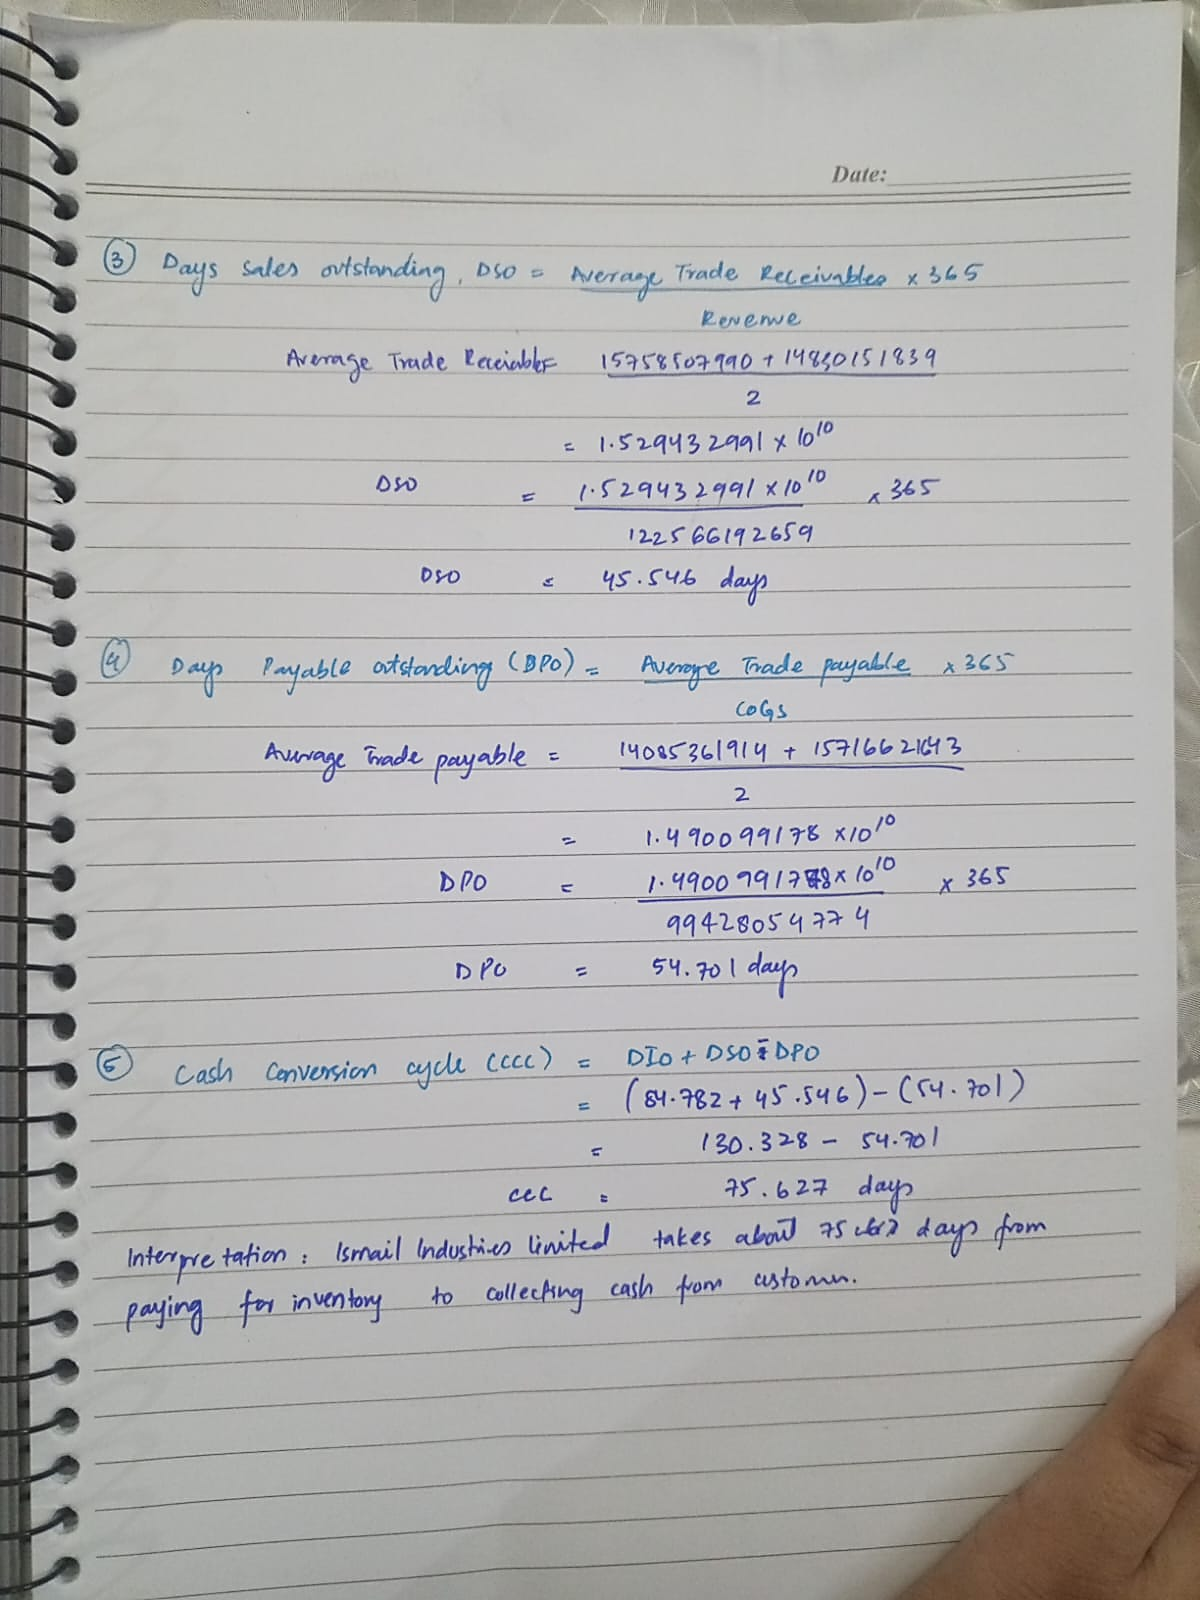 Date:
③ Days sales outstanding, DSO = Average Trade Receivables x 365
Revenue
Average Trade Receivables 15758507990 + 14830151839
2
= 1.529432991 x 10¹⁰
DSO = 1.529432991 x 10¹⁰ x 365
122566192659
DSO = 45.546 days
④ Days Payable outstanding (DPO) = Average Trade payable x 365
COGS
Average Trade payable = 14085361914 + 15716621643
2
= 1.490099178 x10¹⁰
DPO = 1.490099178 x 10¹⁰ x 365
99428054774
DPO = 54.701 days
⑤ Cash Conversion cycle (CCC) = DIO + DSO - DPO
= (84.782 + 45.546) - (54.701)
= 130.328 - 54.701
CCC = 75.627 days
Interpretation : Ismail Industries limited takes about 75 days from
paying for inventory to collecting cash from customer.